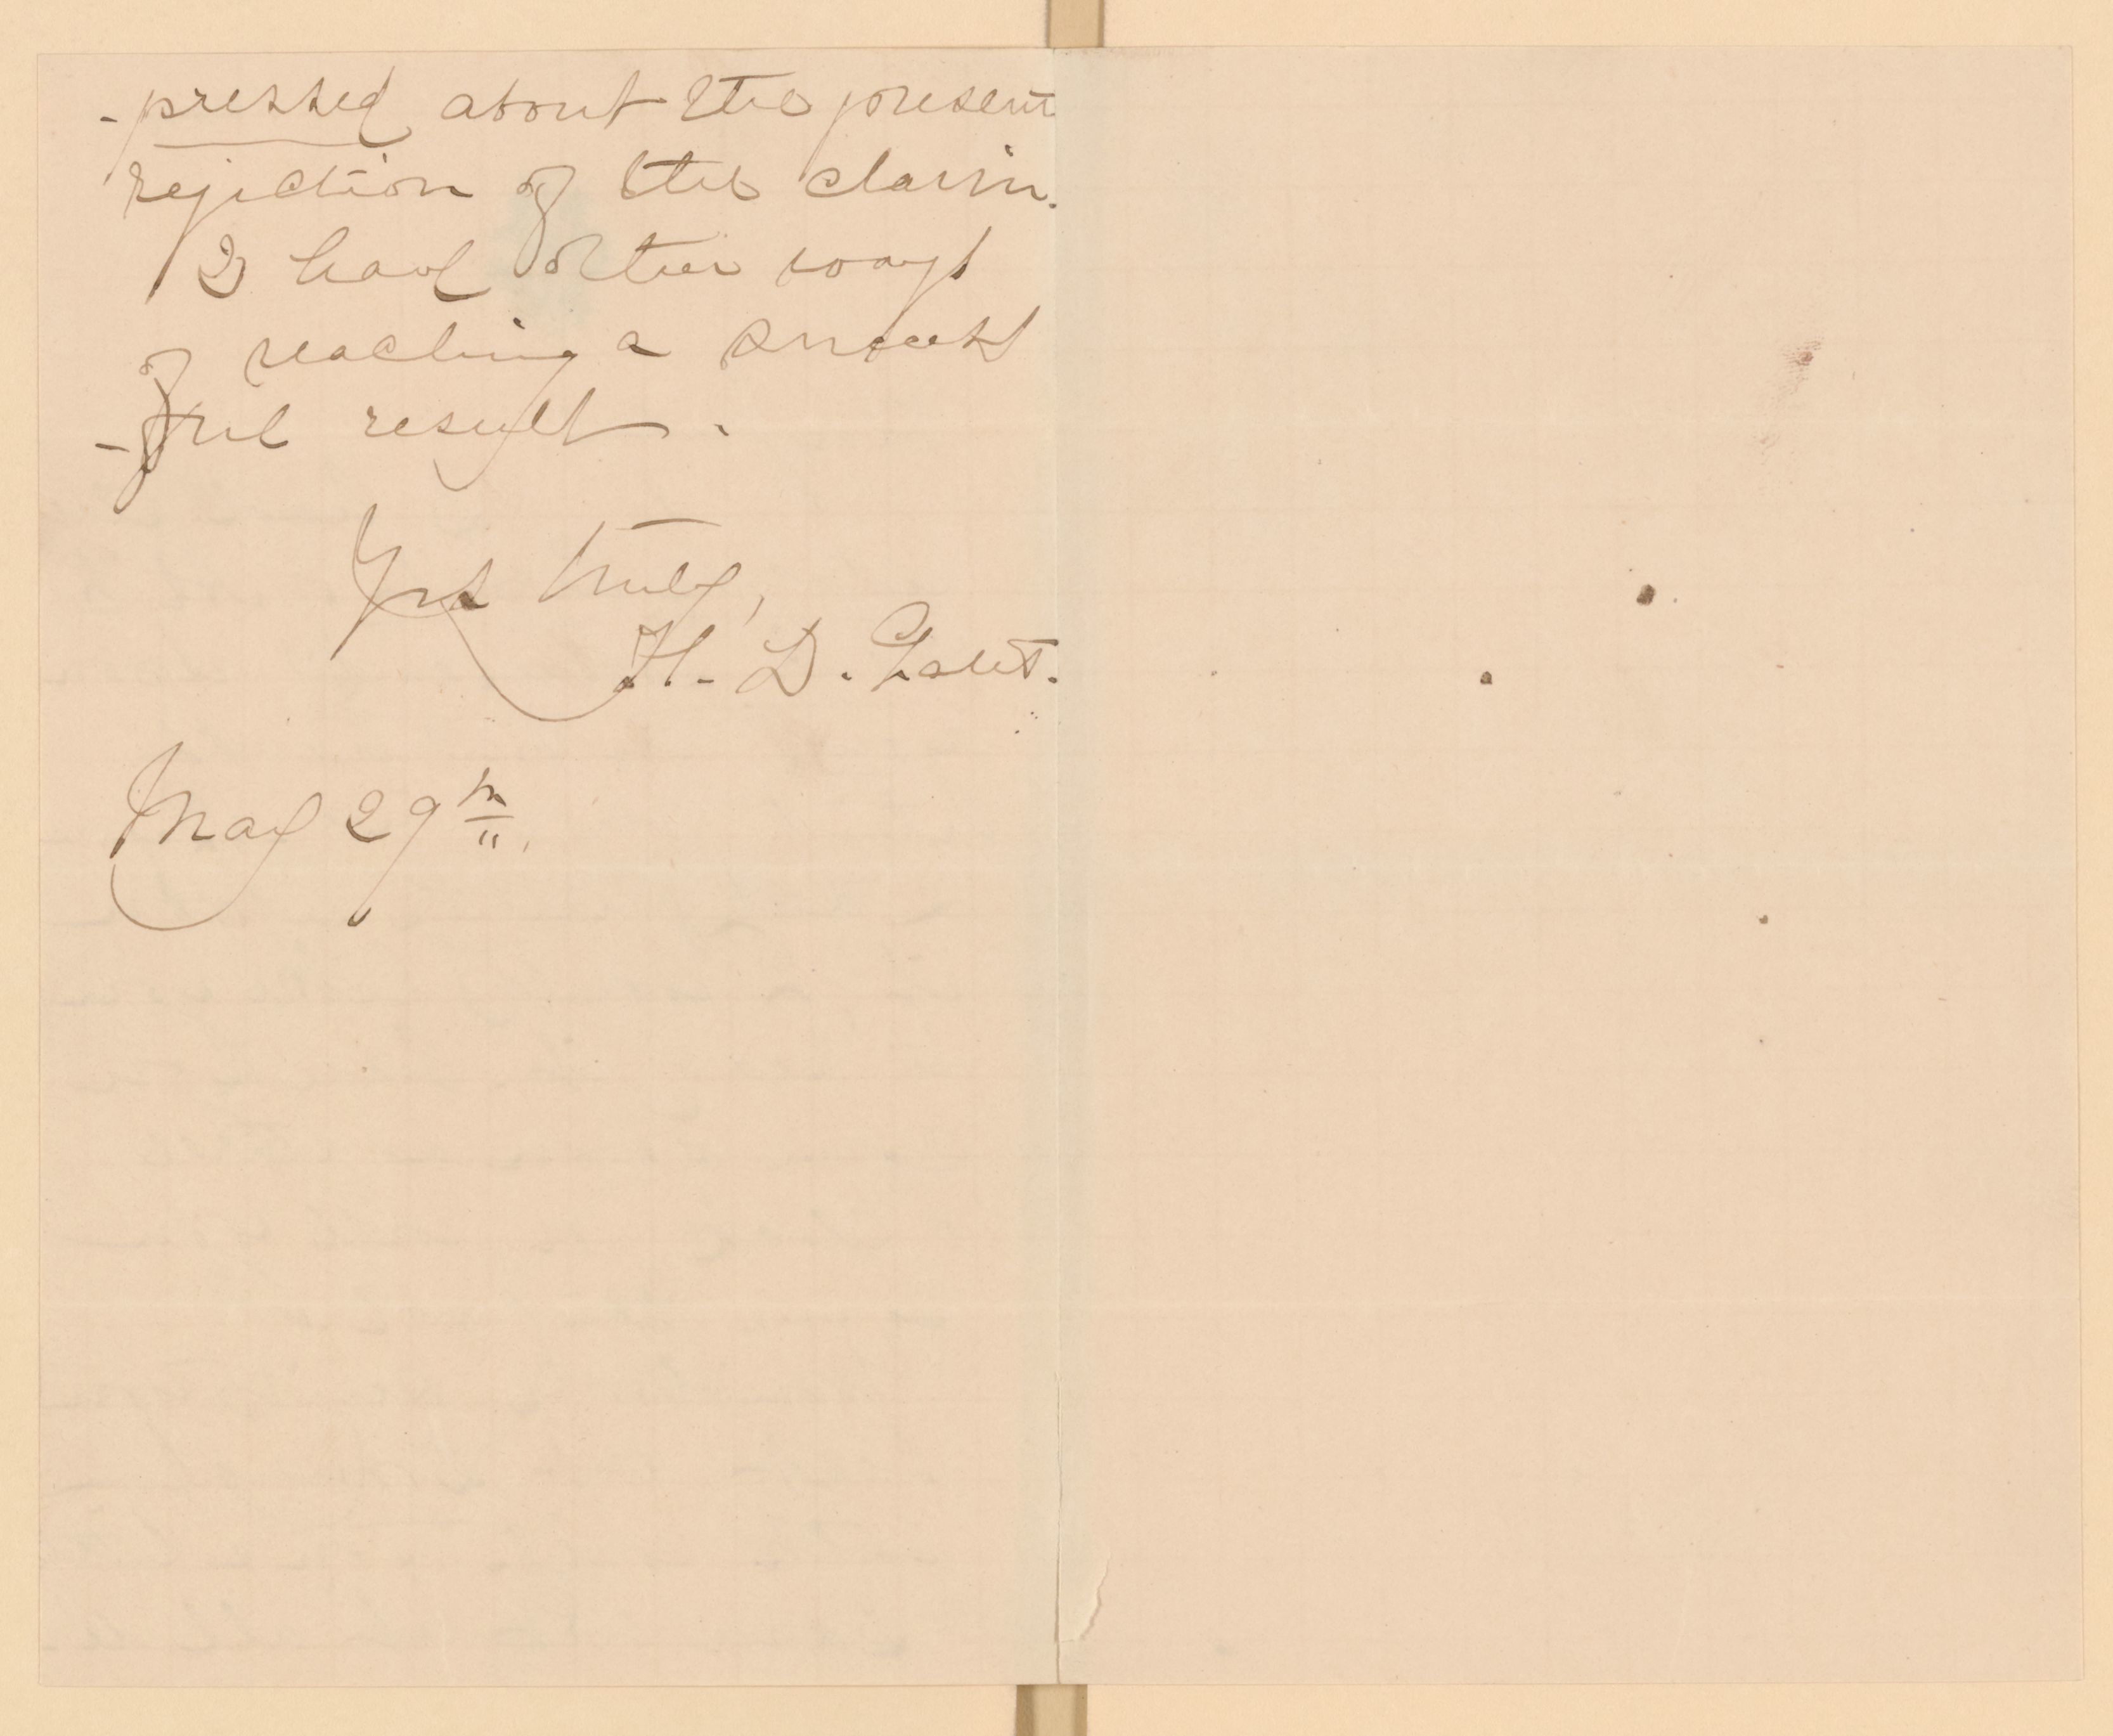 -pressed about the present
rejection of the claim.
I have other ways
of reaching a success
-ful result.
Yrs truly,
H. D.
May 29th.